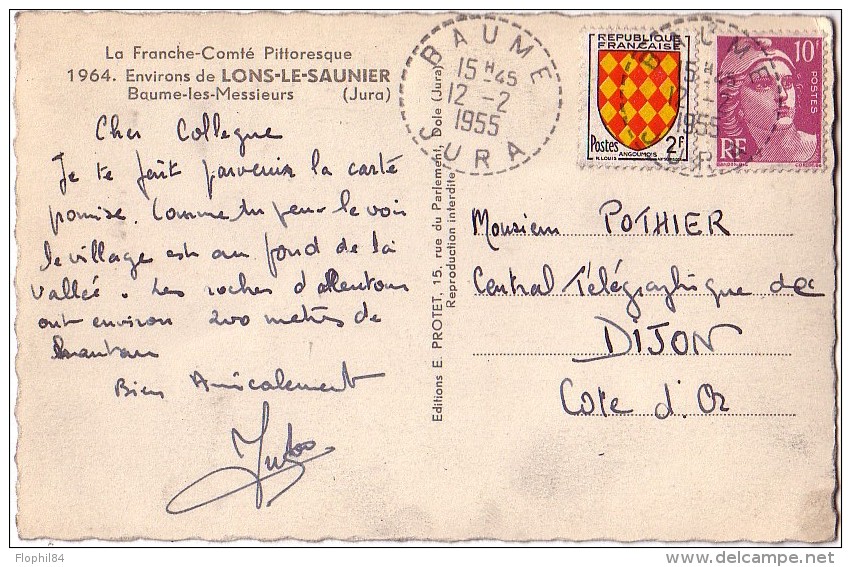 La Franche-Comté Pittoresque
1964. Environs de LONS-LE-SAUNIER
Baume-les-Messieurs (Jura)
Cher Collegue
Je te fait parvenir la carte
promise. Comme tu peux le voir
le village est au fond de la
vallée. Les roches d'allentour
ont environ 200 metres de
hauteur
Bien Amicalement
Editions E. PROTET, 15, rue du Parlement, Dole (Jura)
Reproduction interdite
BAUME
15 H 45
12 -2
1955
JURA
REPUBLIQUE
FRANÇAISE
Postes 2F
ANGOUMOIS
R. LOUIS
BAUME
15 H 45
12 -2
1955
JURA
10F
POSTES
RF
Monsieur POTHIER
Central Télégraphique de
DIJON
Cote d'Or
Flophil84
www.delcampe.net